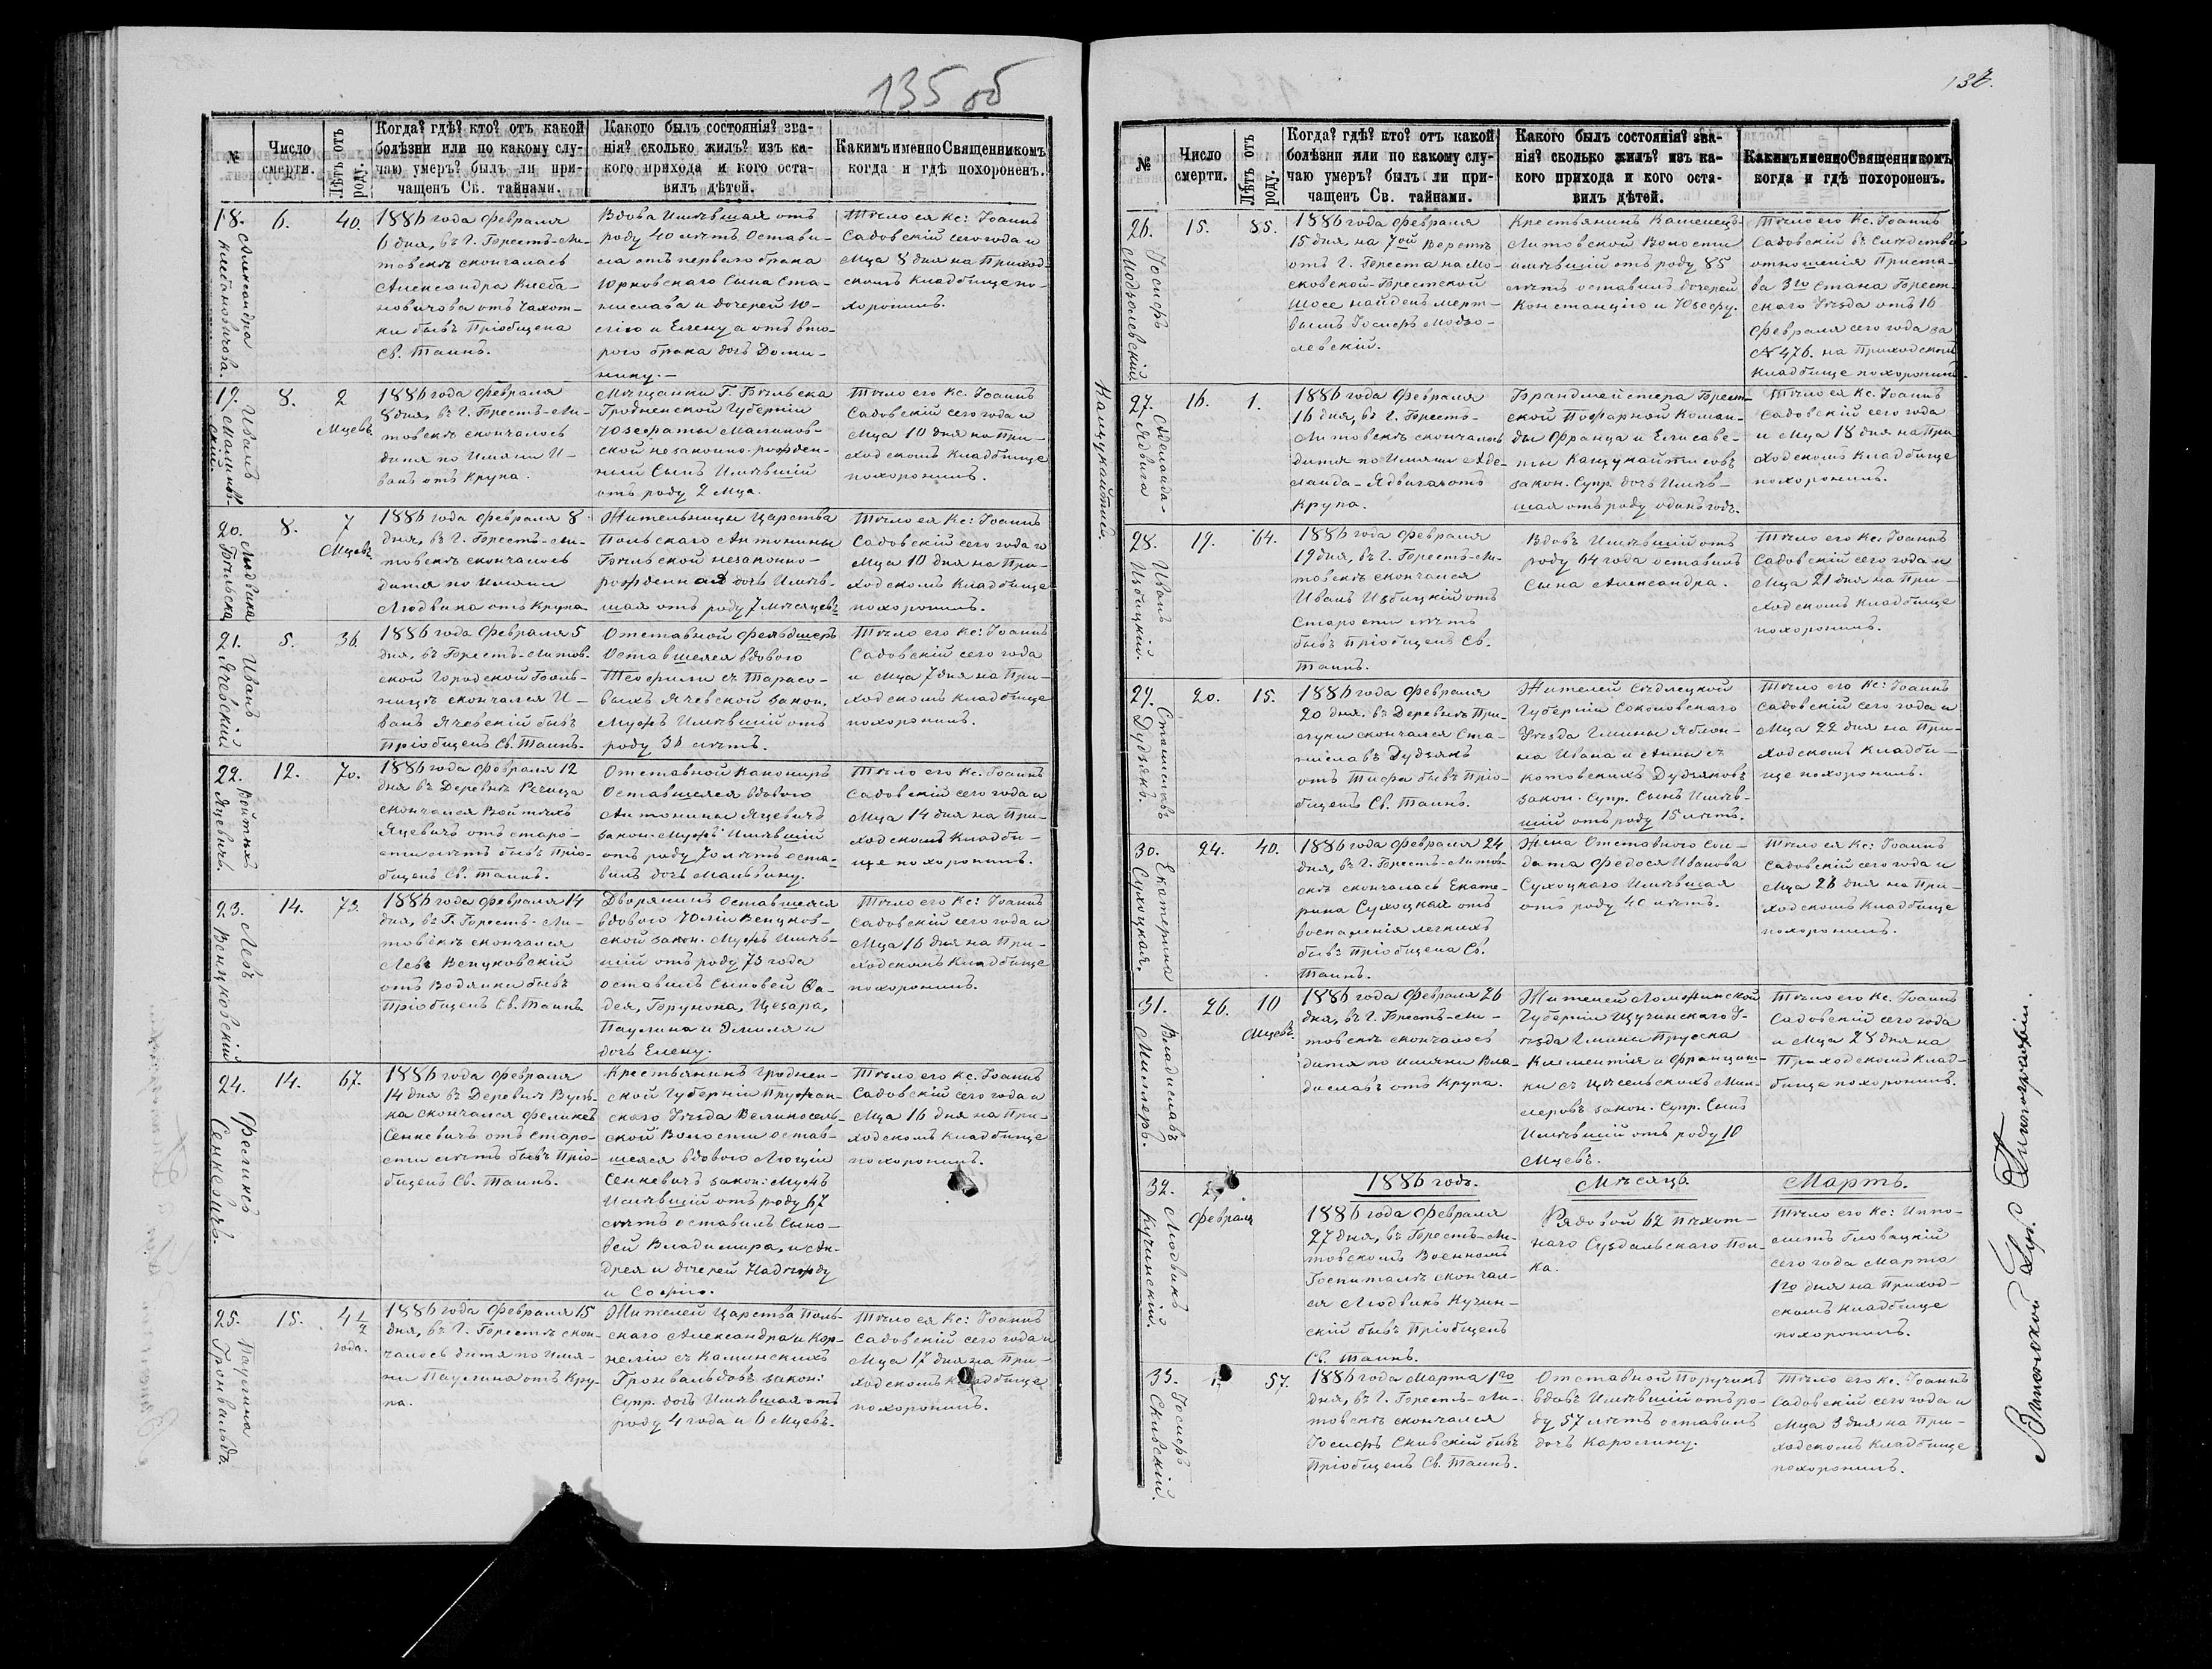 135 об
№
Число смерти.
Лѣтъ отъ роду.
Когда? гдѣ? кто? отъ какой болѣзни или по какому случаю умеръ? былъ ли причащенъ Св. тайнами.
Какого былъ состоянія? званія? сколько жилъ? изъ какого прихода и кого оставилъ дѣтей.
Какимъ именно Священникомъ когда и гдѣ похороненъ.
18.
Александра
Клебановичова.
6.
40.
1886 года Февраля
6 дня, въ Г. Брестъ-Ли-
товскѣ скончалась
Александра Клеба-
новичова отъ Чахот-
ки бывъ Пріобщена
Св. Таинъ.
Вдова Имѣвшая отъ
роду 40 лѣтъ Остави-
ла отъ перваго брака
Юрковскаго Сына Ста-
нислава и дочерей Ю-
лію и Елену а отъ вто-
рого брака дочь Доми-
нику.—
Тѣло ея Кс: Іоаннъ
Садовскій сего года и
Мца 8 дня на Приход-
скомъ Кладбище по-
хоронилъ.
19.
Иванъ
Малинов-
скій.
8.
2
Мцевъ.
1886 года Февраля
8 дня, въ Г. Брестъ-Ли-
товскѣ скончалось
дитя по Имяни И-
ванъ отъ Крупа.
Мѣщанки Г. Бѣльска
Гродненской Губерніи
Юзефаты Малинов-
ской незаконно-рожден-
ный Сынъ Имѣвшій
отъ роду 2 Мца.
Тѣло его Кс. Іоаннъ
Садовскій сего года и
Мца 10 дня на При-
ходскомъ Кладбище
похоронилъ.
20.
Людвика
Бѣльска
8.
7
Мцевъ.
1886 года Февраля 8
дня, въ Г. Брестъ-Ли-
товскѣ скончалось
дитя по имяни
Людвика отъ Крупа
Жительницы Царства
Польскаго Антонины
Бѣльской незаконно-
рожденная дочь Имѣв-
шая отъ роду 7 мѣсяцевъ
Тѣло ея Кс: Іоаннъ
Садовскій сего года и
Мца 10 дня на При-
ходскомъ Кладбище
похоронилъ.
21.
Иванъ
Ячевскій
5.
36.
1886 года Февраля 5
дня, въ Брестъ-Литов-
ской Городской Боль-
ницѣ скончался И-
ванъ Ячевскій бывъ
Пріобщенъ Св. Таинъ.
Отставной Фельдшеръ
Оставшейся вдовою
Теофили съ Тарасо-
выхъ Ячевской закон.
Мужъ Имѣвшій отъ
роду 36 лѣтъ.
Тѣло его Кс: Іоаннъ
Садовскій сего года
и Мца 7 дня на При-
ходскомъ Кладбище
похоронилъ.
22.
Войтѣхъ
Яцевичъ.
12.
70.
1886 года Февраля 12
дня въ Деревнѣ Речица
скончался Войтѣхъ
Яцевичъ отъ старо-
сти лѣтъ бывъ Прі-
общенъ Св. Таинъ.
Отставной Канониръ
Оставшейся вдовою
Антонины Яцевичъ
закон. Мужъ Имѣвшій
отъ роду 70 лѣтъ оста-
вилъ дочь Мальвину.
Тѣло его Кс. Іоаннъ
Садовскій сего года и
Мца 14 дня на При-
ходскомъ Кладби-
ще похоронилъ.
23.
Левъ
Венцковскій
14.
73.
1886 года Февраля 14
дня, въ Г. Брестъ-Ли-
товскѣ скончался
Левъ Венцковскій
отъ Водянки бывъ
Пріобщенъ Св. Таинъ
Дворянинъ Оставшейся
вдовою Юліи Венцков-
ской закон. Мужъ Имѣв-
шій отъ роду 73 года
оставилъ Сыновей Фа-
дея, Брунона, Цезара,
Паулина и Эмиля и
дочь Елену.
Тѣло его Кс: Іоаннъ
Садовскій сего года и
Мца 16 дня на При-
ходскомъ Кладбище
похоронилъ.
24.
Феликсъ
Сенкевичъ.
14.
67.
1886 года Февраля
14 дня въ Деревнѣ Вуль-
ка скончался Феликсъ
Сенкевичъ отъ Старо-
сти лѣтъ бывъ Прі-
общенъ Св. Таинъ.
Крестьянинъ Гроднен-
ской Губерніи Пружан-
скаго Уѣзда Великосель-
ской Волости остав-
шейся вдовою Люціи
Сенкевичъ закон: Мужъ
Имѣвшій отъ роду 67
лѣтъ оставилъ Сыно-
вей Владимира, и Ан-
дрея и дочерей Надежду
и Софію.
Тѣло его Кс. Іоаннъ
Садовскій сего года и
Мца 16 дня на При-
ходскомъ Кладбище
похоронилъ.
25.
Паулина
Гронвальдъ.
15.
4 1/2
года.
1886 года Февраля 15
дня, въ Г. Брестѣ скон-
чалось дитя по Имя-
ни Паулина отъ Кру-
па.
Жителей Царства Поль-
скаго Александра и Кор-
неліи съ Каминскихъ
Гронвальдовъ закон:
Супр. дочь Имѣвшая отъ
роду 4 года и 6 Мцевъ.
Тѣло ея Кс: Іоаннъ
Садовскій сего года и
Мца 17 дня на При-
ходскомъ Кладбище
похоронилъ.
№
Число смерти.
Лѣтъ отъ роду.
Когда? гдѣ? кто? отъ какой болѣзни или по какому случаю умеръ? былъ ли причащенъ Св. тайнами.
Какого былъ состоянія? званія? сколько жилъ? изъ какого прихода и кого оставилъ дѣтей.
Какимъ именно Священникомъ когда и гдѣ похороненъ.
26.
Іосифъ
Модзолевскій
15.
85.
1886 года Февраля
15 дня, на 7ой Верстѣ
отъ Г. Бреста на Мо-
сковской-Брестской
Шосе найденъ мерт-
вымъ Іосифъ Модзо-
левскій.
Крестьянинъ Каменецъ-
Литовской Волости
имѣвшій отъ роду 85
лѣтъ оставилъ дочерей
Констанцію и Юзефу.
Тѣло его Кс. Іоаннъ
Садовскій въ слѣдствіе
отношенія Приста-
ва 3го Стана Брест-
скаго Уѣзда отъ 16
Февраля сего года за
№ 476. на Приходскомъ
Кладбище похоронилъ.
27.
Аделаида-
Ядвига
Канцукайтисъ.
16.
1.
1886 года Февраля
16 дня, въ Г. Брестъ-
Литовскѣ скончалось
дитя по Имяни Аде-
лаида-Ядвига отъ
Крупа.
Брандмейстера Брест-
ской Пожарной Коман-
ды Франца и Елисаве-
ты Канцукайтисовъ
закон. Супр. дочь Имѣв-
шая отъ роду одинъ годъ.
Тѣло ея Кс. Іоаннъ
Садовскій сего года
и Мца 18 дня на При-
ходскомъ Кладбище
похоронилъ.
28.
Иванъ
Избицкій.
19.
64.
1886 года Февраля
19 дня, въ Г. Брестъ-Ли-
товскѣ скончался
Иванъ Избицкій отъ
Старости лѣтъ
бывъ пріобщенъ Св.
Таинъ.
Вдовъ Имѣвшій отъ
роду 64 года оставилъ
Сына Александра.
Тѣло его Кс. Іоаннъ
Садовскій сего года и
Мца 21 дня на При-
ходскомъ Кладбище
похоронилъ.
29.
Станиславъ
Дудзякъ.
20.
15.
1886 года Февраля
20 дня, въ Деревнѣ При-
луки скончался Ста-
ниславъ Дудзякъ
отъ Тифа бывъ Прі-
общенъ Св. Таинъ.
Жителей Сѣдлецкой
Губерніи Соколовскаго
Уѣзда Гмины Яблон-
на Ивана и Анны съ
Котовскихъ Дудзяковъ
закон. Супр. Сынъ Имѣв-
шій отъ роду 15 лѣтъ.
Тѣло его Кс: Іоаннъ
Садовскій сего года и
Мца 22 дня на При-
ходскомъ Кладби-
ще похоронилъ.
30.
Екатерина
Сухоцкая.
24.
40.
1886 года Февраля 24
дня, въ Г. Брестъ-Литов-
скѣ скончалась Екате-
рина Сухоцкая отъ
воспаленія легкихъ
бывъ Пріобщена Св.
Таинъ.
Жена Отставного Сол-
дата Федося Иванова
Сухоцкаго Имѣвшая
отъ роду 40 лѣтъ.
Тѣло ея Кс: Іоаннъ
Садовскій сего года и
Мца 26 дня на При-
ходскомъ Кладбище
похоронилъ.
31.
Владиславъ
Миллеръ.
26.
10
Мцевъ.
1886 года Февраля 26
дня, въ Г. Брестъ-Ли-
товскѣ скончалось
дитя по имяни Вла-
диславъ отъ Крупа.
Жителей Ломжинской
Губерніи Щучинскаго У-
ѣзда Гмины Пруска
Клементія и Францин-
ки съ Цѣсельскихъ Мил-
леровъ закон. Супр. Сынъ
Имѣвшій отъ роду 10
Мцевъ.
Тѣло его Кс. Іоаннъ
Садовскій сего года
и Мца 28 дня на
Приходскомъ Клад-
бище похоронилъ.
1886 годъ.
Мѣсяцъ.
Мартъ.
32.
Людвикъ
Кучинскій.
Февраля
1886 года Февраля
27 дня, въ Брестъ-Ли-
товскомъ Военномъ
Госпиталѣ скончал-
ся Людвикъ Кучин-
скій бывъ Пріобщенъ
Св. Таинъ.
Рядовой 62 Пѣхот-
наго Суздальскаго Пол-
ка.
Тѣло его Кс: Иппо-
литъ Гловацкій
сего года Марта
1го дня на Приход-
скомъ Кладбище
похоронилъ.
33.
Іосифъ
Скивскій.
1.
57.
1886 года Марта 1го
дня, въ Г. Брестъ-Ли-
товскѣ скончался
Іосифъ Скивскій бывъ
Пріобщенъ Св. Таинъ.
Отставной Поручикъ
вдовъ Имѣвшій отъ ро-
ду 57 лѣтъ оставилъ
дочь Каролину.
Тѣло его Кс. Іоаннъ
Садовскій сего года и
Мца 3 дня на При-
ходскомъ Кладбище
похоронилъ.